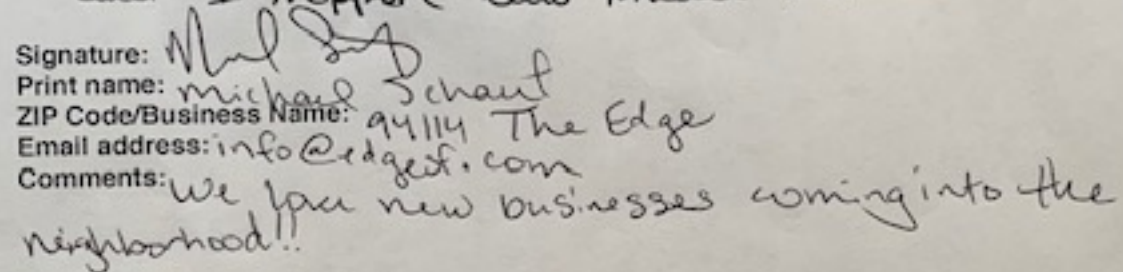 I support
Signature:
Print name: Michael Schaut
ZIP Code/Business Name: 94114 The Edge
Email address: info@edgesf.com
Comments: We love new businesses coming into the
neighborhood!!